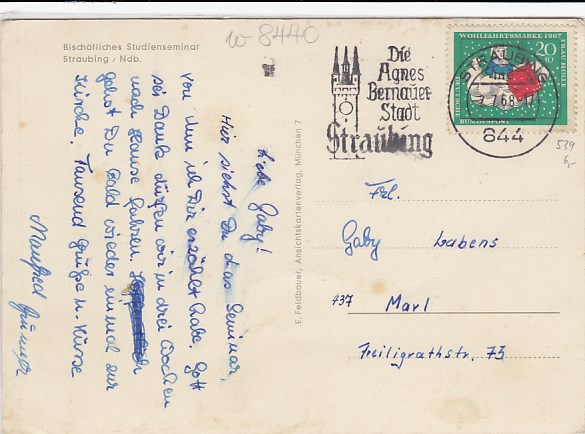 Bischöfliches Studienseminar
Straubing / Ndb.
w-8440
Die
Agnes
Bernauer
Stadt
Straubing
WOHLFAHRTSMARKE 1967
FRAU HOLLE
20
+10
DEUTSCHE
BUNDESPOST
STRAUBING
7.68-17
844
539
6,-
Liebe Gaby!
Hier siehst Du das Seminar,
von dem ich Dir erzählt habe. Gott
sei Dank dürfen wir in drei Wochen
nach Hause fahren.
gehst Du bald wieder einmal zur
Kirche. Tausend Grüße u. Küsse
Manfred
E. Feldbauer, Ansichtskartenverlag, München 7
Frl.
Gaby Labens
437 Marl
Freiligrathstr. 73